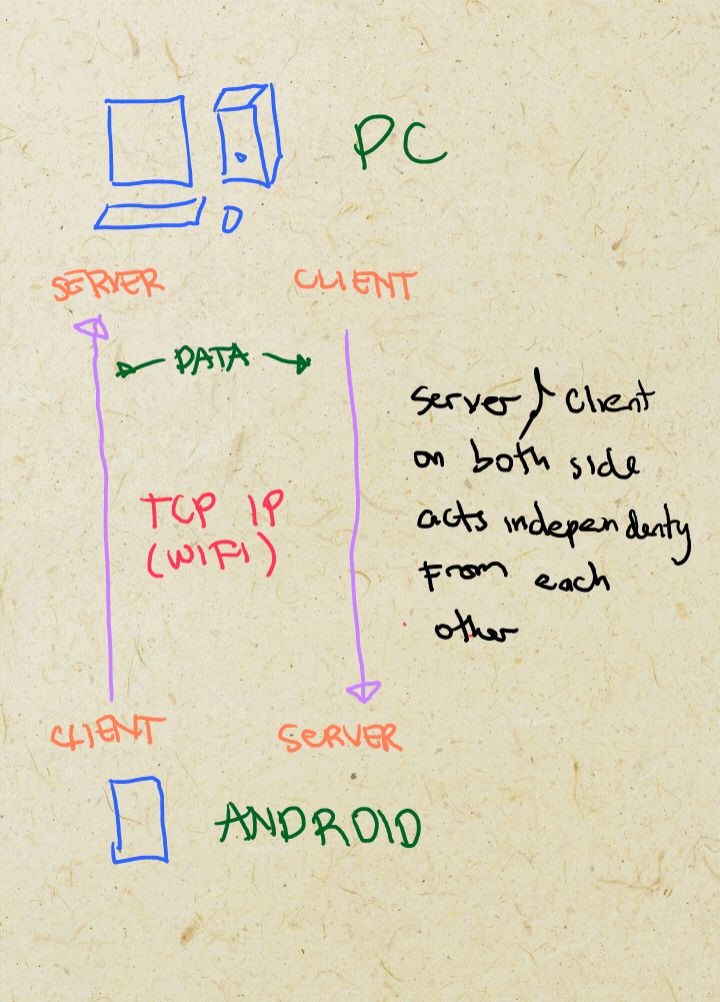 PC
SERVER CLIENT
DATA
TCP IP
(WIFI)
server / client
on both side
acts independenty
From each
other
CLIENT SERVER
ANDROID